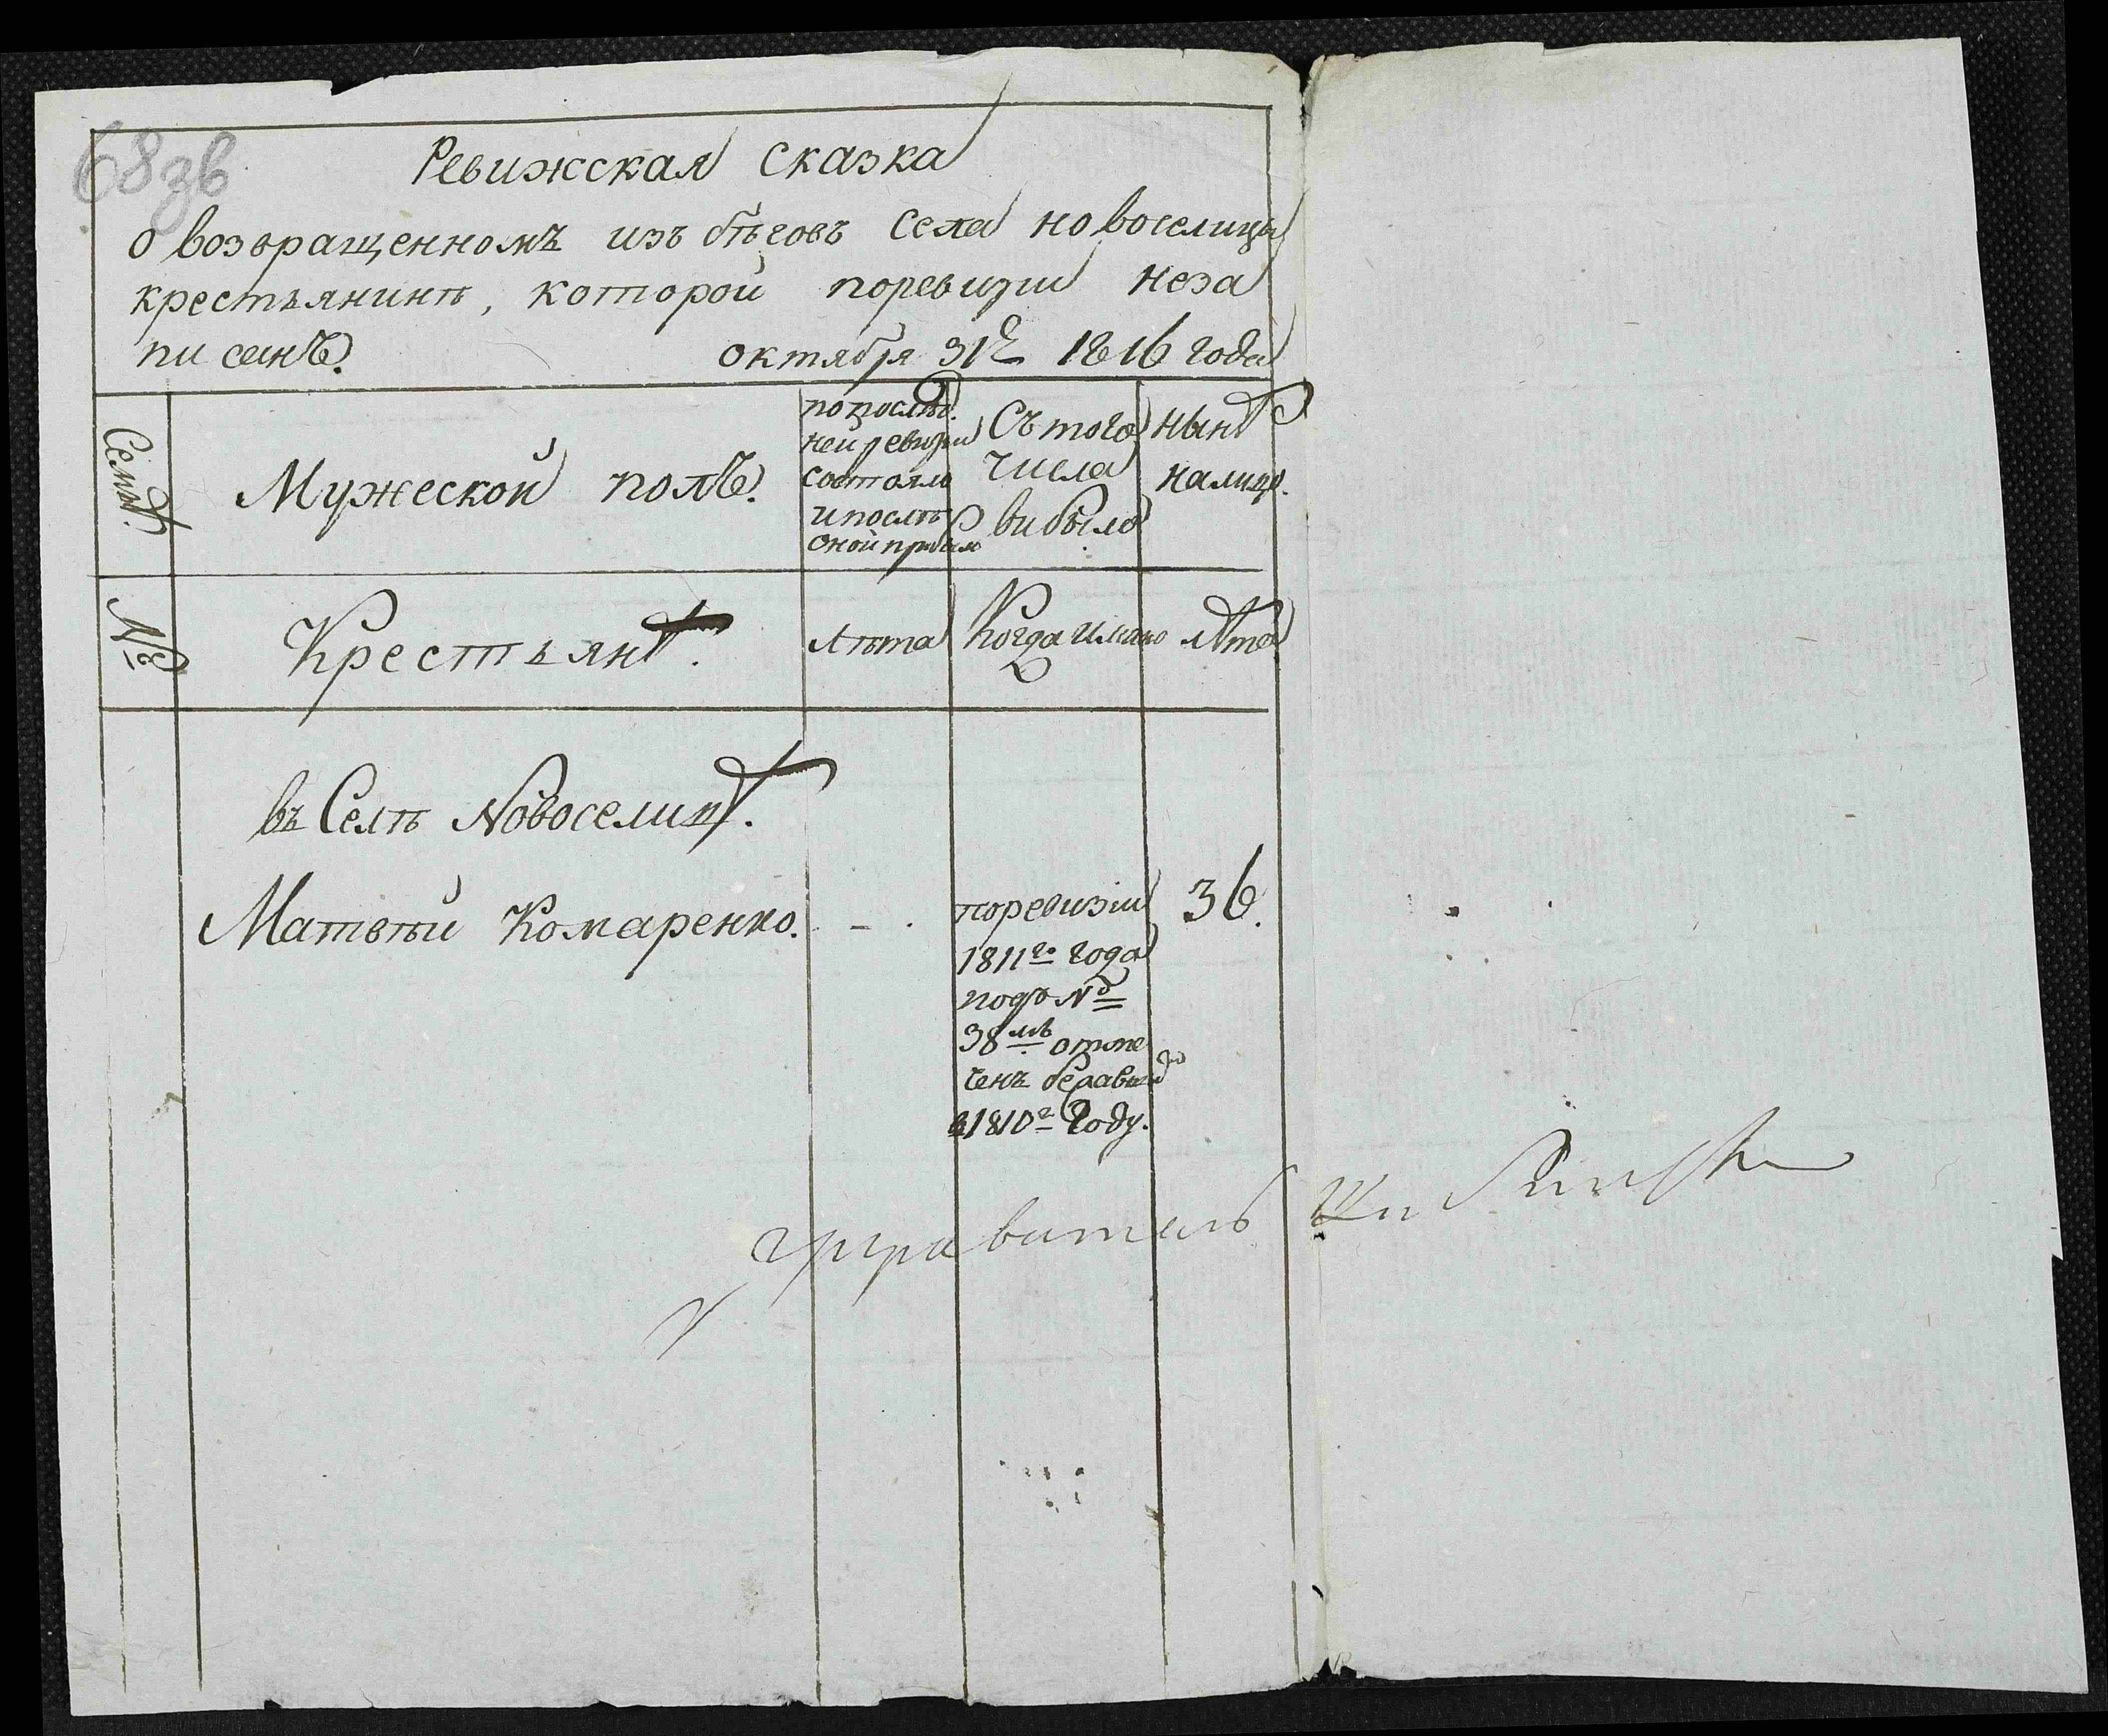 68зв
Ревижская сказка
о возвращенномъ изъ бѣговъ села новоселицы
крестьянинѣ, которой поревизіи неза
писанъ.
октября 31г 1816 года
Семьи.
Мужеской полъ.
попослѣд.
ней ревизіи
состояло
ипослѣ
оной прибыло
Съ того
числа
выбыло
нынѣ
налицо.
№
Крестьянѣ.
Лѣта
Когда имяно
лѣта
въ Селѣ Новоселицѣ.
Матвѣй Комаренко.
поревизіи
1811го года
подъ №
38мъ отме
ченъ бежавшій
в1810г Году.
36.
управитель